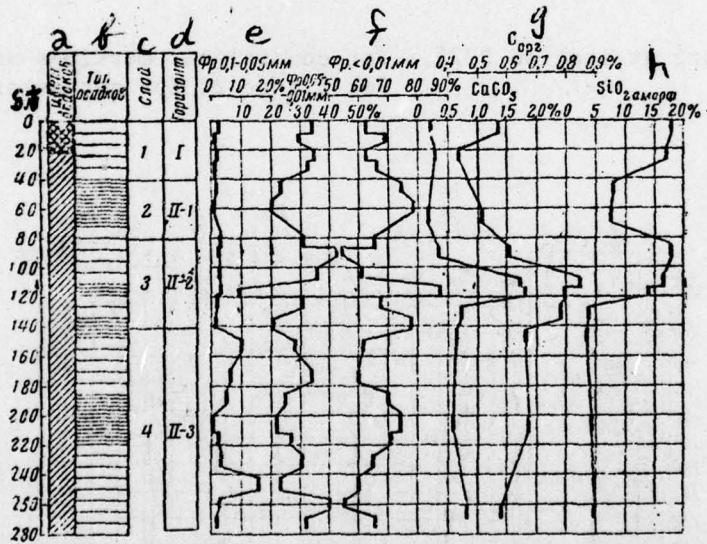 a b c d e f g h
Цвет осадков
Тип осадков
Слой
Горизонт
Фр 0,1-0,05мм
0 10 20%
Фр 0,05-0,01мм
10 20 30 40 50%
Фр. < 0,01мм
50 60 70 80 90%
Сорг
0,4 0,5 0,6 0,7 0,8 0,9%
CaCO3
0 0,5 1,0 1,5 2,0%
SiO2аморф
0 5 10 15 20%
0
20
40
60
80
100
120
140
160
180
200
220
240
250
280
1 I
2 II-1
3 II-2
4 II-3